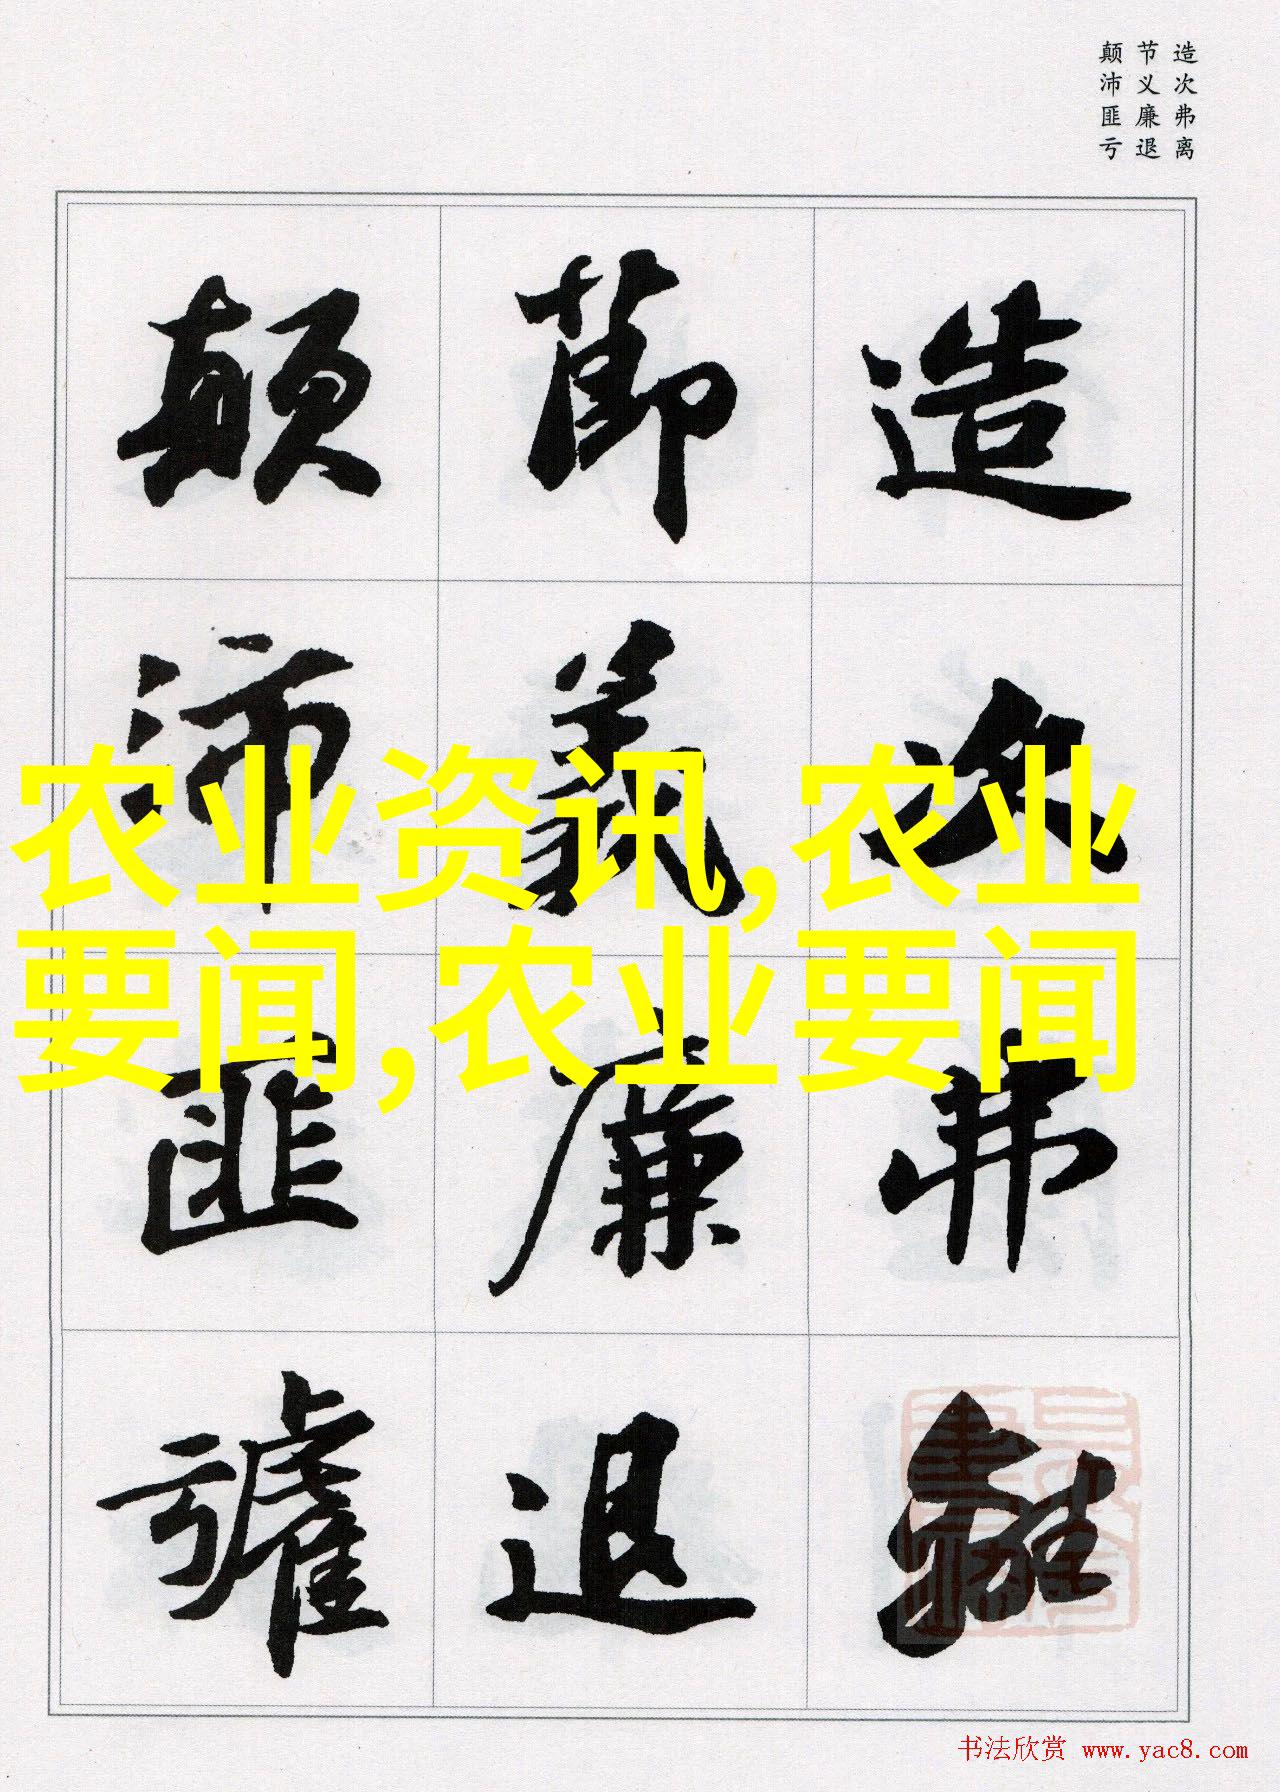 造次弗离
节义廉退
颠沛匪亏
造次弗離
節義廉退
顛沛匪虧
农业资讯,农业
要闻,农业要闻
书法欣赏 www.yac8.com